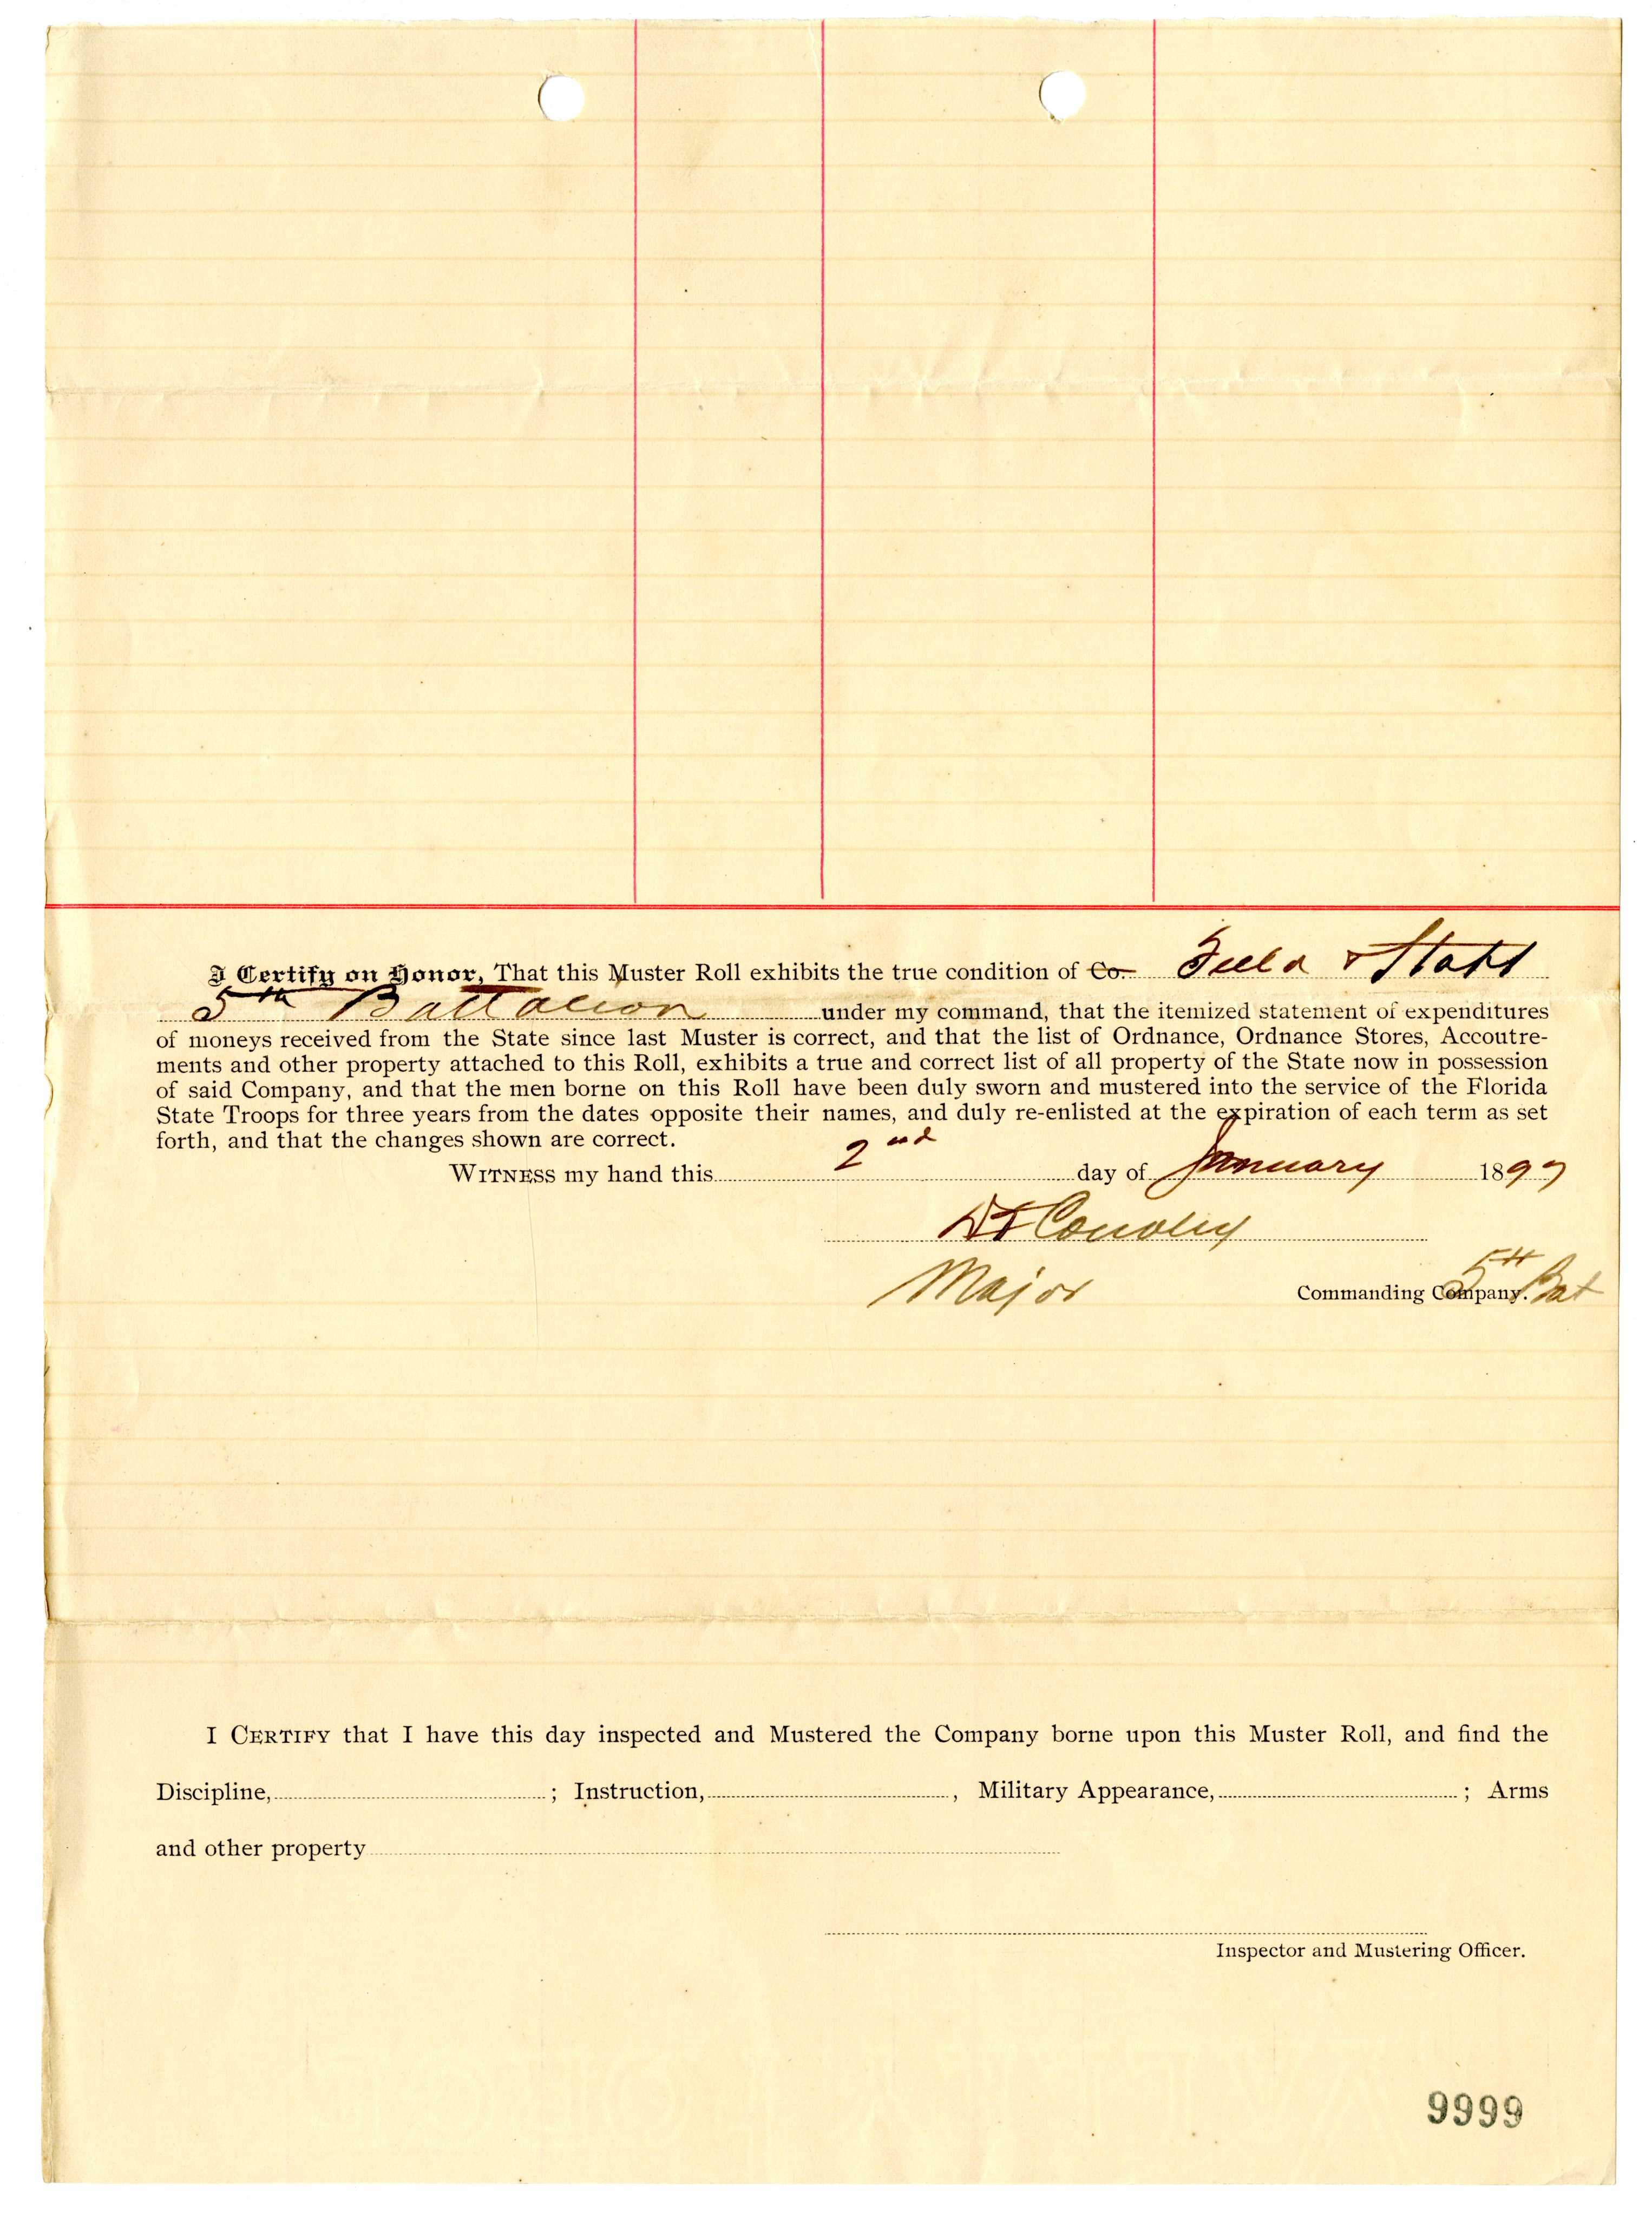 I Certify on Honor, That this Muster Roll exhibits the true condition of Co. Field & Staff
5th Battalion under my command, that the itemized statement of expenditures
of moneys received from the State since last Muster is correct, and that the list of Ordnance, Ordnance Stores, Accoutre-
ments and other property attached to this Roll, exhibits a true and correct list of all property of the State now in possession
of said Company, and that the men borne on this Roll have been duly sworn and mustered into the service of the Florida
State Troops for three years from the dates opposite their names, and duly re-enlisted at the expiration of each term as set
forth, and that the changes shown are correct.
WITNESS my hand this 2nd day of January 189
Major Commanding Company. 5th Bat
I CERTIFY that I have this day inspected and Mustered the Company borne upon this Muster Roll, and find the
Discipline, ; Instruction, , Military Appearance, ; Arms
and other property
Inspector and Mustering Officer.
9999